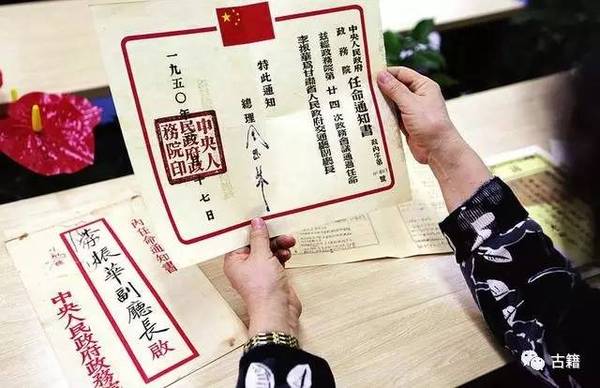 中央人民政府
政務院
任命通知書
政內字第
號
茲經政務院第廿四次政務會議通過任命
李振華爲甘肅省人民政府交通廳副廳長
特此通知
總理
周恩來
一九五〇年
七日
中央人
民政府政
務院印
內任命通知書
李振華副廳長 啟
中央人民政府政務
古籍